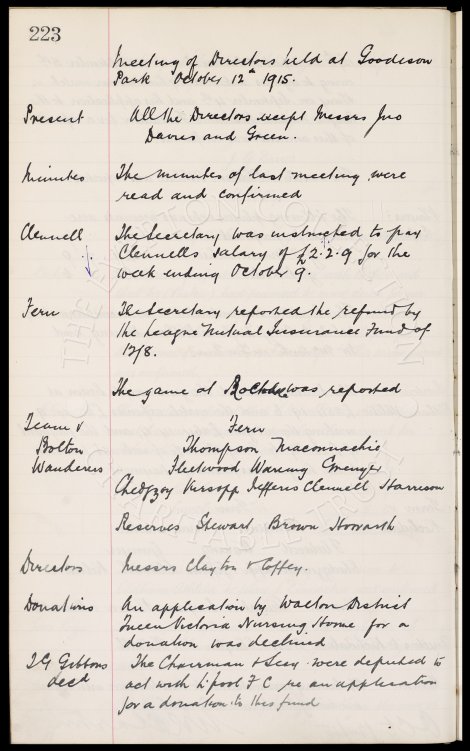 223
Meeting of Directors held at Goodison
Park October 12th 1915.
Present All the Directors except Messrs Jno
Davies and Green.
Minutes The minutes of last meeting were
read and confirmed
Clennell The Secretary was instructed to pay
Clennells salary of £2.2.9 for the
week ending October 9.
Fern The Secretary reported the refund by
the League Mutual Insurance Fund of
12/8.
The game at Rochdale was reported
Team v Fern
Bolton Thompson Maconnachie
Wanderers Fleetwood Wareing Grenyer
Chedgzoy Kirsopp Jefferis Clennell Harrison
Reserves Stewart, Brown Howarth
Directors Messrs Clayton & Coffey.
Donations An application by Walton District
Queen Victoria Nursing Home for a
donation was declined
The Chairman & Secy were deputed to
Gibbons
decd act with L'pool F C re an application
for a donation to this fund
THE EVERTON
COLLECTION
CHARITABLE TRUST